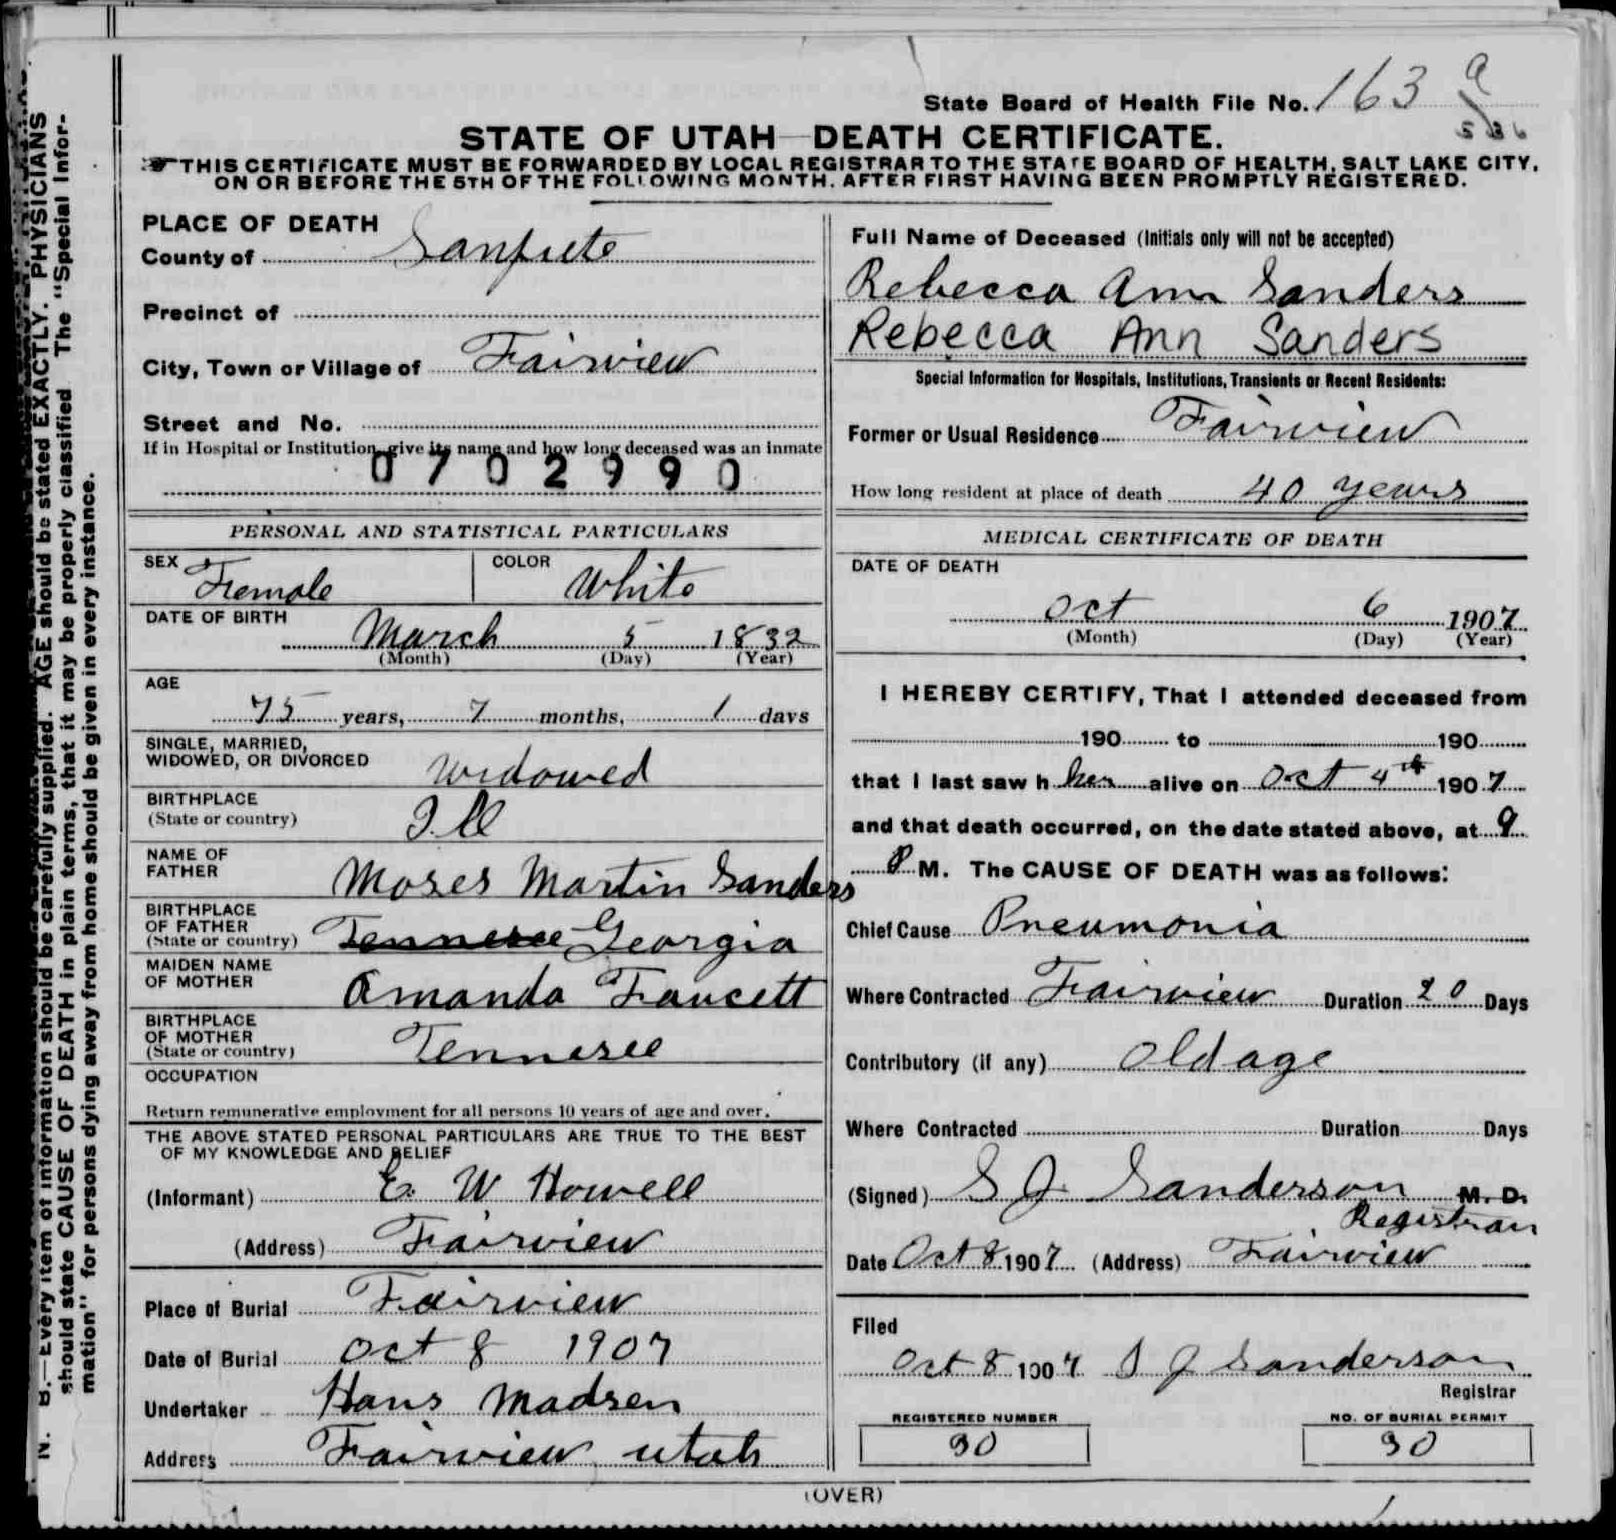 State Board of Health File No. 163
STATE OF UTAH—DEATH CERTIFICATE.
THIS CERTIFICATE MUST BE FORWARDED BY LOCAL REGISTRAR TO THE STATE BOARD OF HEALTH, SALT LAKE CITY,
ON OR BEFORE THE 5TH OF THE FOLLOWING MONTH. AFTER FIRST HAVING BEEN PROMPTLY REGISTERED.
N. B.—Every item of information should be carefully supplied. AGE should be stated EXACTLY. PHYSICIANS
should state CAUSE OF DEATH in plain terms, that it may be properly classified The "Special Infor-
mation" for persons dying away from home should be given in every instance.
PLACE OF DEATH
County of Sanpete
Precinct of
City, Town or Village of Fairview
Street and No.
If in Hospital or Institution, give its name and how long deceased was an inmate
0702990
PERSONAL AND STATISTICAL PARTICULARS
SEX Female COLOR White
DATE OF BIRTH
March 5 1832
(Month) (Day) (Year)
AGE
75 years, 7 months, 1 days
SINGLE, MARRIED,
WIDOWED, OR DIVORCED widowed
BIRTHPLACE
(State or country) Ill
NAME OF
FATHER Moses Martin Sanders
BIRTHPLACE
OF FATHER
(State or country) Tennesee Georgia
MAIDEN NAME
OF MOTHER Amanda Faucett
BIRTHPLACE
OF MOTHER
(State or country) Tennesee
OCCUPATION
Return remunerative employment for all persons 10 years of age and over.
THE ABOVE STATED PERSONAL PARTICULARS ARE TRUE TO THE BEST
OF MY KNOWLEDGE AND BELIEF
(Informant) E. W Howell
(Address) Fairview
Place of Burial Fairview
Date of Burial Oct 8 1907
Undertaker Hans Madsen
Address Fairview, utah
Full Name of Deceased (Initials only will not be accepted)
Rebecca Ann Sanders
Rebecca Ann Sanders
Special Information for Hospitals, Institutions, Transients or Recent Residents:
Former or Usual Residence Fairview
How long resident at place of death 40 years
MEDICAL CERTIFICATE OF DEATH
DATE OF DEATH
Oct 6 1907
(Month) (Day) (Year)
I HEREBY CERTIFY, That I attended deceased from
190 to 190
that I last saw h her alive on Oct 4th 1907
and that death occurred, on the date stated above, at 9
P M. The CAUSE OF DEATH was as follows:
Chief Cause Pneumonia
Where Contracted Fairview Duration 20 Days
Contributory (if any) Old age
Where Contracted Duration Days
(Signed) S J Sanderson M. D.
Registrar
Date Oct 8 1907 (Address) Fairview
Filed
Oct 8 1907 S J Sanderson
Registrar
REGISTERED NUMBER NO. OF BURIAL PERMIT
30 30
(OVER)